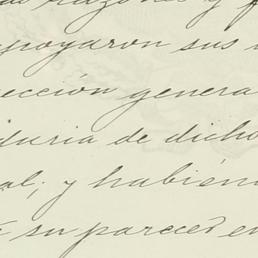 razones y
apoyaron sus
ección genera
duria de dicho
al; y habién
su parecer en